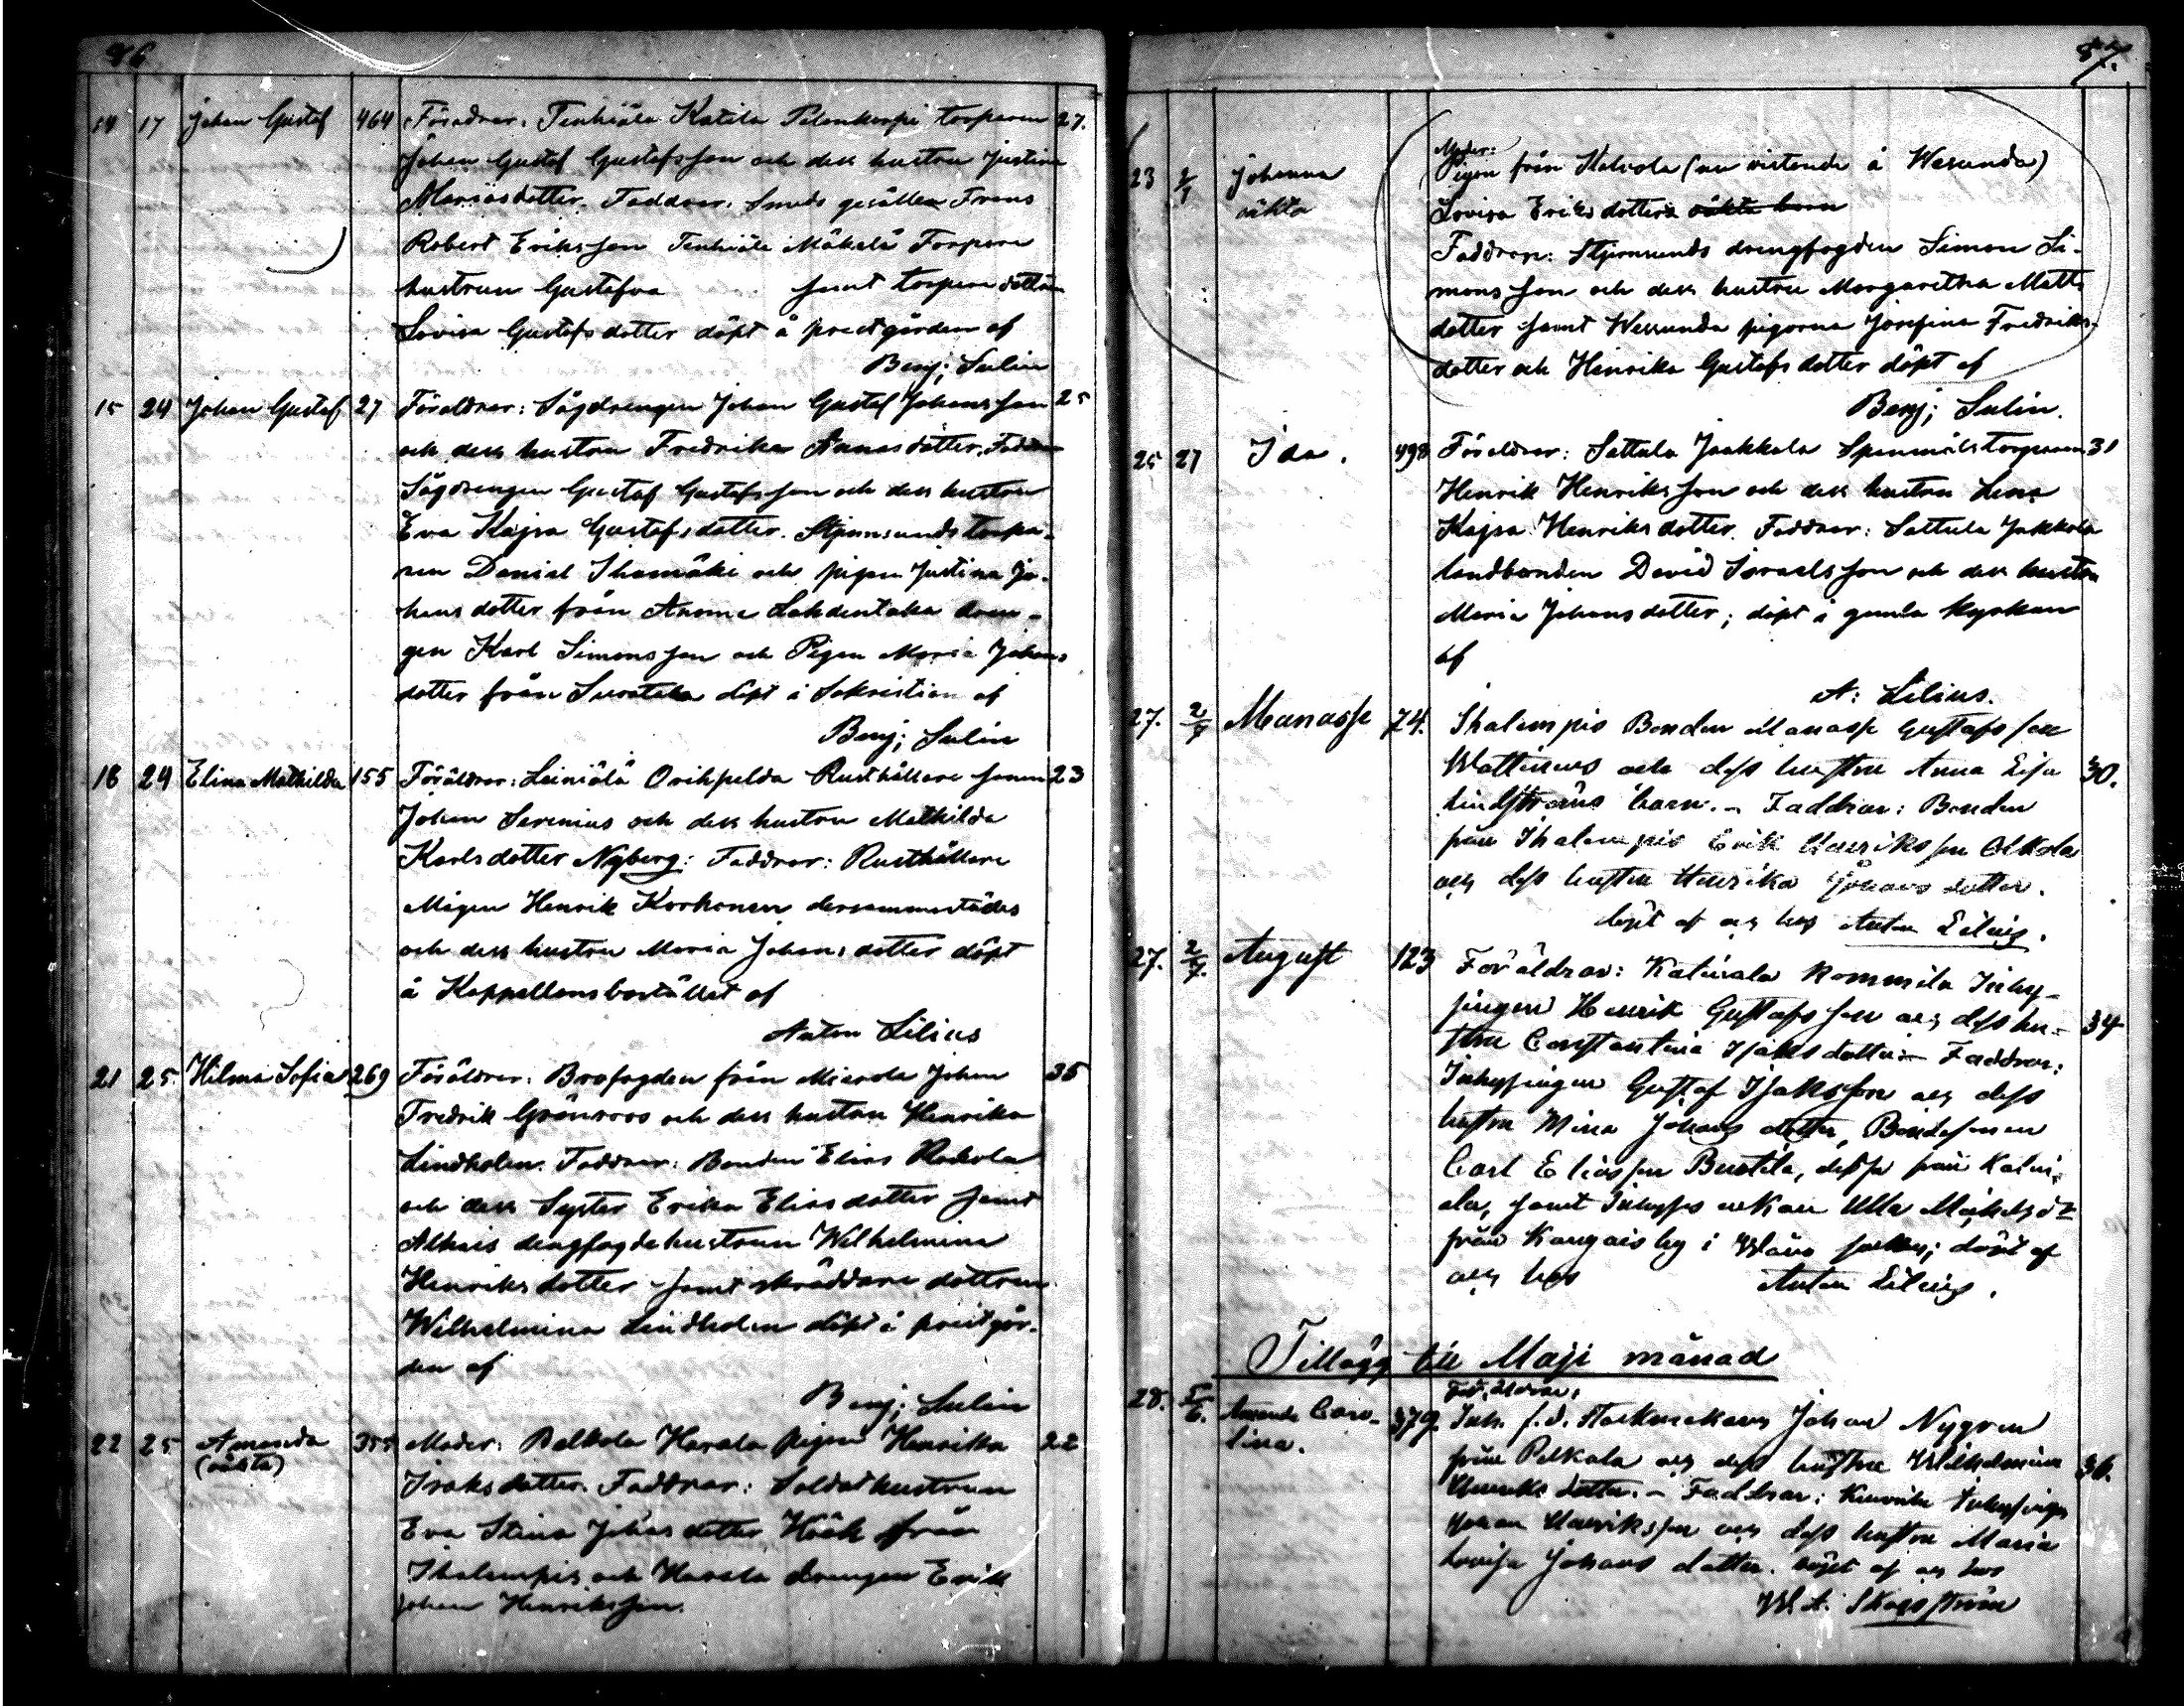 86
14 17 Johan Gustaf 464 Föräldrar: Tenhiälä Katila torparen 27.
Johan Gustaf Gustafsson och dess hustru Justina
Mariasdotter. Faddrar: Smeds gesällen Frans
Robert Eriksson Tenhiälä Mäkelä Torpare
hustrun Gustafva samt torpare dottren
Lovisa Gustafsdotter döpt å prestgården af
Benj; Sulin
15 24 Johan Gustaf 27 Föräldrar: Sågdrengen Johan Gustaf Johansson 25
och dess hustru Fredrika Annasdotter. Faddrar
Sågdrengen Gustaf Gustafsson och dess hustru
Eva Kajsa Gustafsdotter. Stjernsunds torpa-
ren Daniel Ihamäki och pigan Justina Jo-
hansdotter från Anome Lahdentaka dren-
gen Karl Simonsson och Pigan Maria Johans
dotter från döpt i Sakristian af
Benj; Sulin
18 24 Elina Mathilda 155 Föräldrar: Leiniälä Orihpelda Rusthållare sonen 23
Johan Serenius och dess hustru Mathilda
Karlsdotter Nyberg: Faddrar: Rusthållare
Mågen Henrik Korhonen dersammastädes
och dess hustru Maria Johansdotter döpt
å Kappellansbostället af
Anton Lilius
21 25 Hilma Sofia 269 Föräldrar: Brofogden från Mierola Johan 35
Fredrik Grönroos och dess hustru Henrika
Lindholm. Faddrar: Bonden Elias Rokola
och dess Syster Erika Eliasdotter samt
Alhais drengfogdehustrun Wilhelmina
Henriksdotter samt skräddare dottren
Wilhelmina Lindholm döpt å prestgår-
den af
Benj; Sulin
22 25 Amanda 355 Moder: Pelkola Harala pigan Henrika 22
(oäkta) Isaksdotter. Faddrar: Soldathustrun
Eva Stina Johansdotter Höök från
Ihalempis och Harala drengen Erik
Johan Henriksson.
87.
23 2/7 Johanna Moder:
Pigan från Kalvola (nu vistande å Wesunda)
oäkta Lovisa Eriksdotters oäkta barn
Faddrar: Stjernsunds drengfogden Simon Si-
monsson och dess hustru Margaretha Matts
dotter samt Wesunda pigorna Josefina Fredriks-
dotter och Henrika Gustafsdotter döpt af
Benj; Sulin.
25 27 Ida. 498 Föräldrar: Sattula Jaakkola torparen 31
Henrik Henriksson och dess hustru Lena
Kajsa Henriksdotter. Faddrar: Sattula Jakkola
landbonden David Israelsson och dess hustru
Maria Johansdotter; döpt i gamla kyrkan
af
A: Lilius.
27. 2/7 Manasse 74. Ihalempis Bonden Manasse Gustafsson
Wattinens och dess hustru Anna Lisa 30.
Lindströms barn. – Faddrar: Bonden
från Ihalempis Erik Henriksson Olkola
och dess hustru Henrika Johansdotter.
döpt af och hos Anton Lilius.
27. 2/7. August 123 Föräldrar: Katinala Rommila Inhy-
singen Henrik Gustafsson och dess hu- 34
stru Constantina Isaksdotter – Faddrar:
Inhysingen Gustaf Isaksson och dess
hustru Mina Johansdotter, Bondesonen
Carl Eliasson Bustila, desse från Katin-
ala, samt Inhyses enkan Ulla Michelsdr
från Kangais by i Wånå socken; döpt af
och hos Anton Lilius.
Tillägg till Maji månad
28. 5/6. Amanda Caro- 379. Föräldrar:
Inh. f.d. Stockmakaren Johan Nygren
lina. från Pelkola och dess hustru Wilhelmina 36.
Henriksdotter. – Faddrar: Inhysingen
Johan Henriksson och dess hustru Maria
Lovisa Johansdotter. döpt af och hos
W. A. Skogström